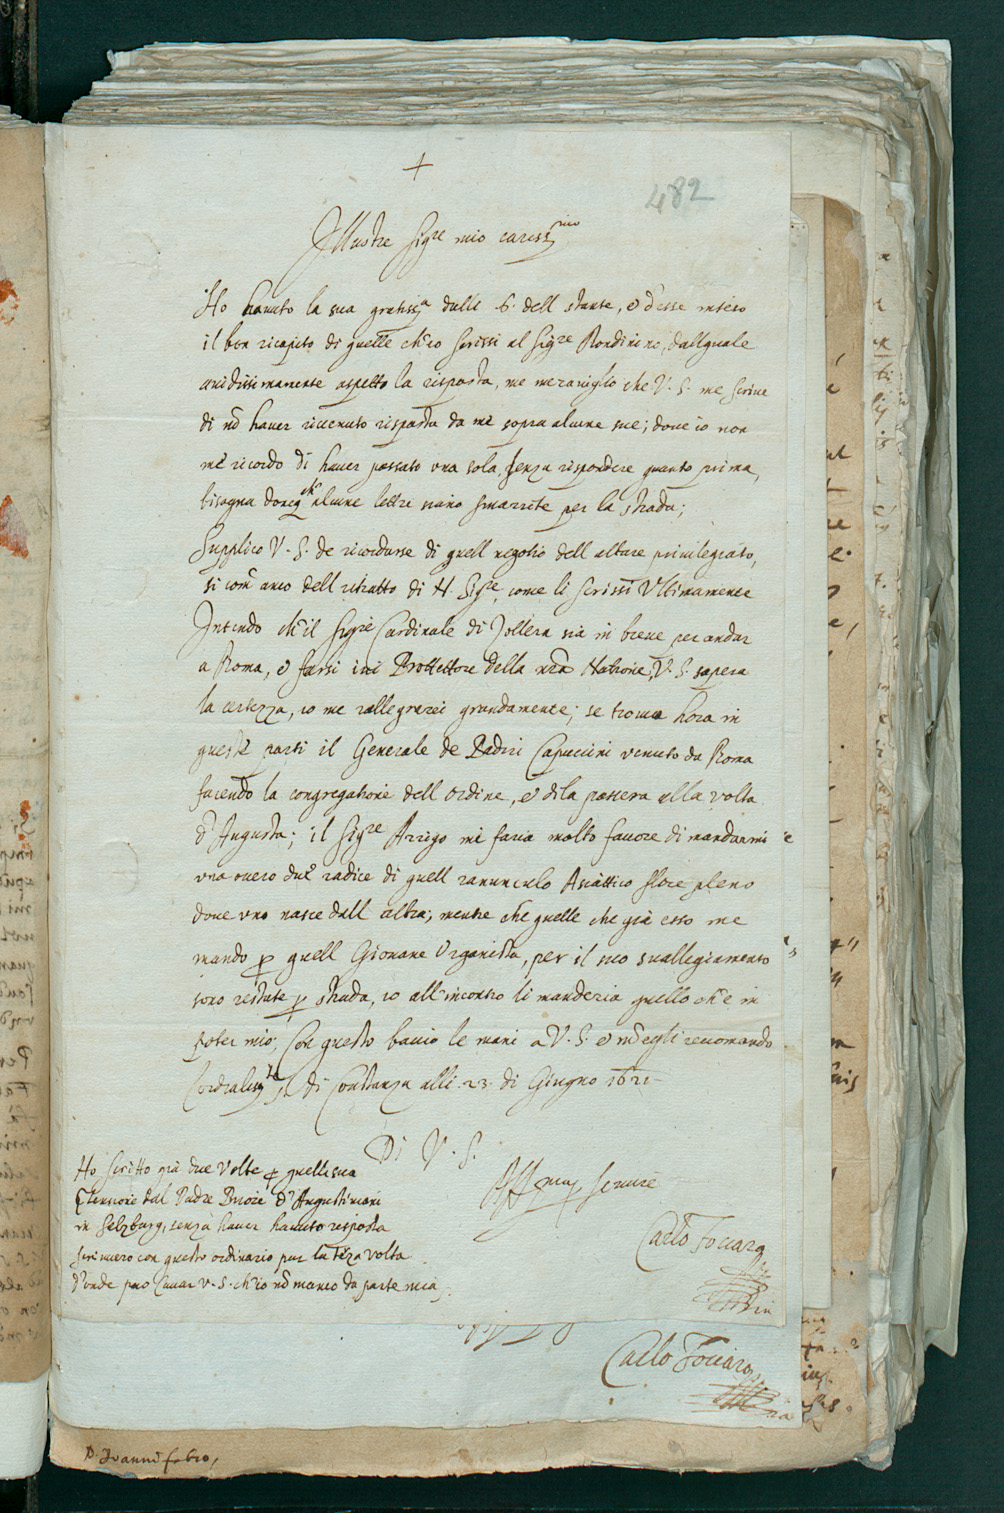 +
482
Illustre Sigre mio cariss.mo
Ho havuto la sua gratiss.a dalli 6. dell stante, e d'esse inteso
il bon ricapito di quelle ch'io scrissi al Sigre Rondinino, dall quale
avidissimamente aspetto la risposta, me meraviglio che V. S. me scrive
di nō haver ricevuto risposta da me sopra alcune sue; dove io non
me ricordo di haver passato una sola, senza rispondere quanto prima,
bisogna donq ch' alcune lettre siano smarrite per la strada;
Supplico V. S. de ricordarse di quell negotio dell altare privilegiato,
si com' anco dell ritratto di N. Sigre, come li scrissi Ultimamente
Intendo ch'il Sigre Cardinale di Zollern sia in breve per andar
a Roma, e farsi ivi Prottettore della nrā Natione, V. S. sapera
la certezza, io me rallegrarei grandamente; se trova hora in
queste parti il Generale de Padri Capucini venuto da Roma
facendo la congregatione dell ordine, e di la passera alla volta
d'Augusta; il Sigre Arrigo mi faria molto favore di mandarmi
una overo due radice di quell ranunculo Asiattico flore pleno
dove uno nasce dall altra; mentre che quelle che già esso me
mando p quell Giovane Organista, per il suo svallegiamento
sono restate p strada, io all'incontro li manderia quello ch'e in
poter mio; Con questo bacio le mani a V. S. e mēgli recomando
di Constanza alli 23. di Giugno 1621
Di V. S.
Aff.mo servire
Carlo Foccaro
Ho scritto già due Volte p quelle sua
dal Padre Priore d'Augustiniani
in Salzburg, senza haver havuto risposta
scrivero con questo ordinario pur la terza volta
d'onde puo V. S. ch'io nō manco da parte mia.
Carlo Foccaro
D. Ioanni fabro,